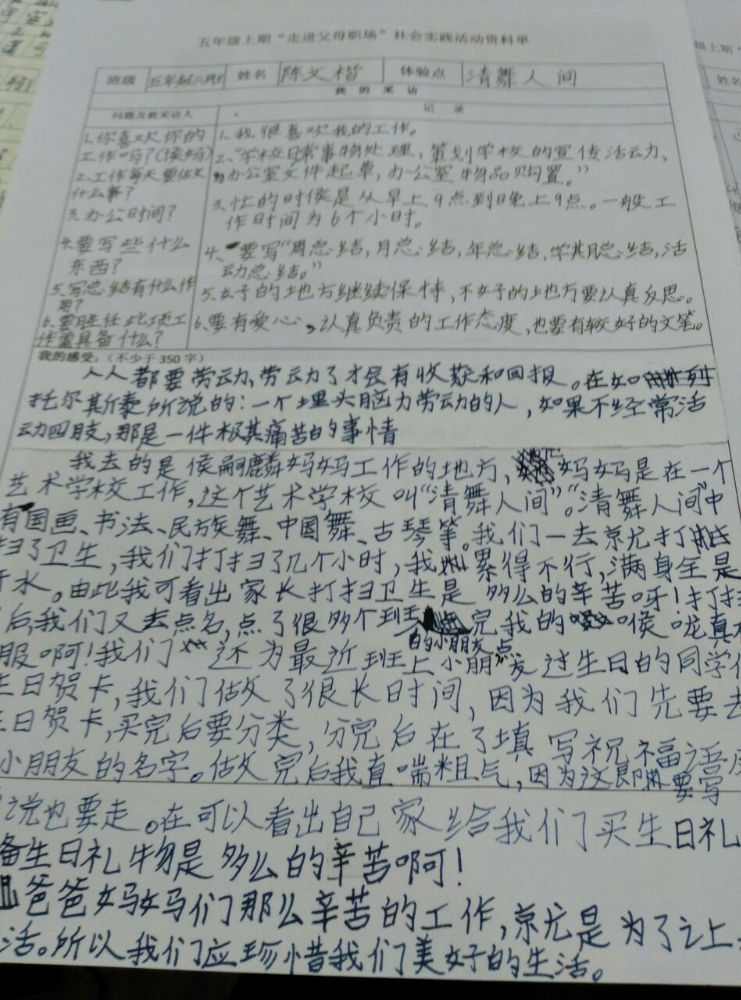 五年级上期“走进父母职场”社会实践活动资料单
班级 五年级六班 姓名 陈文楷 体验点 清舞人间
我的采访
问题及被采访人 记录
1.你喜欢你的工作吗?(侯妈)
1.我很喜欢我的工作。
2.工作每天要做什么事?
2.“学校日常事物处理,策划学校的宣传活动,
办公室文件起草,办公室物品购置。”
3.办公时间?
3.忙的时候是从早上9点到晚上9点。一般工
作时间为6个小时。
4.要写些什么
东西?
4.要写“周总结,月总结,年总结,学期总结,活
动总结。”
5.写总结有什么作
用?
5.好的地方继续保持,不好的地方要认真反思。
6.要胜任此项工
作需具备什么?
6.要有爱心,认真负责的工作态度,也要有较好的文笔。
我的感受:(不少于350字)
人人都要劳动,劳动了才会有收获和回报。在如列
托尔斯泰所说的:一个埋头脑力劳动的人,如果不经常活
动四肢,那是一件极其痛苦的事情
我去的是侯嗣麟妈妈工作的地方,妈妈是在一个
艺术学校工作,这个艺术学校叫“清舞人间”。“清舞人间”中
有国画、书法、民族舞、中国舞、古琴筝。我们一去就打
扫了卫生,我们打扫了几个小时,我累得不行,满身全是
汗水。由此我可看出家长打扫卫生是多么的辛苦呀!打扫
后,我们又去点名,点了很多个班的小朋友点完我的喉咙真
服啊!我们还为最近班上小朋友过生日的同学
生日贺卡,我们做了很长时间,因为我们先要去
生日贺卡,买完后要分类,分完后在了填写祝福语
小朋友的名字。做完后我直喘粗气,因为这即要写
说也要走。在可以看出自己家给我们买生日礼
备生日礼物是多么的辛苦啊!
爸爸妈妈们那么辛苦的工作,就是为了让
活。所以我们应珍惜我们美好的生活。